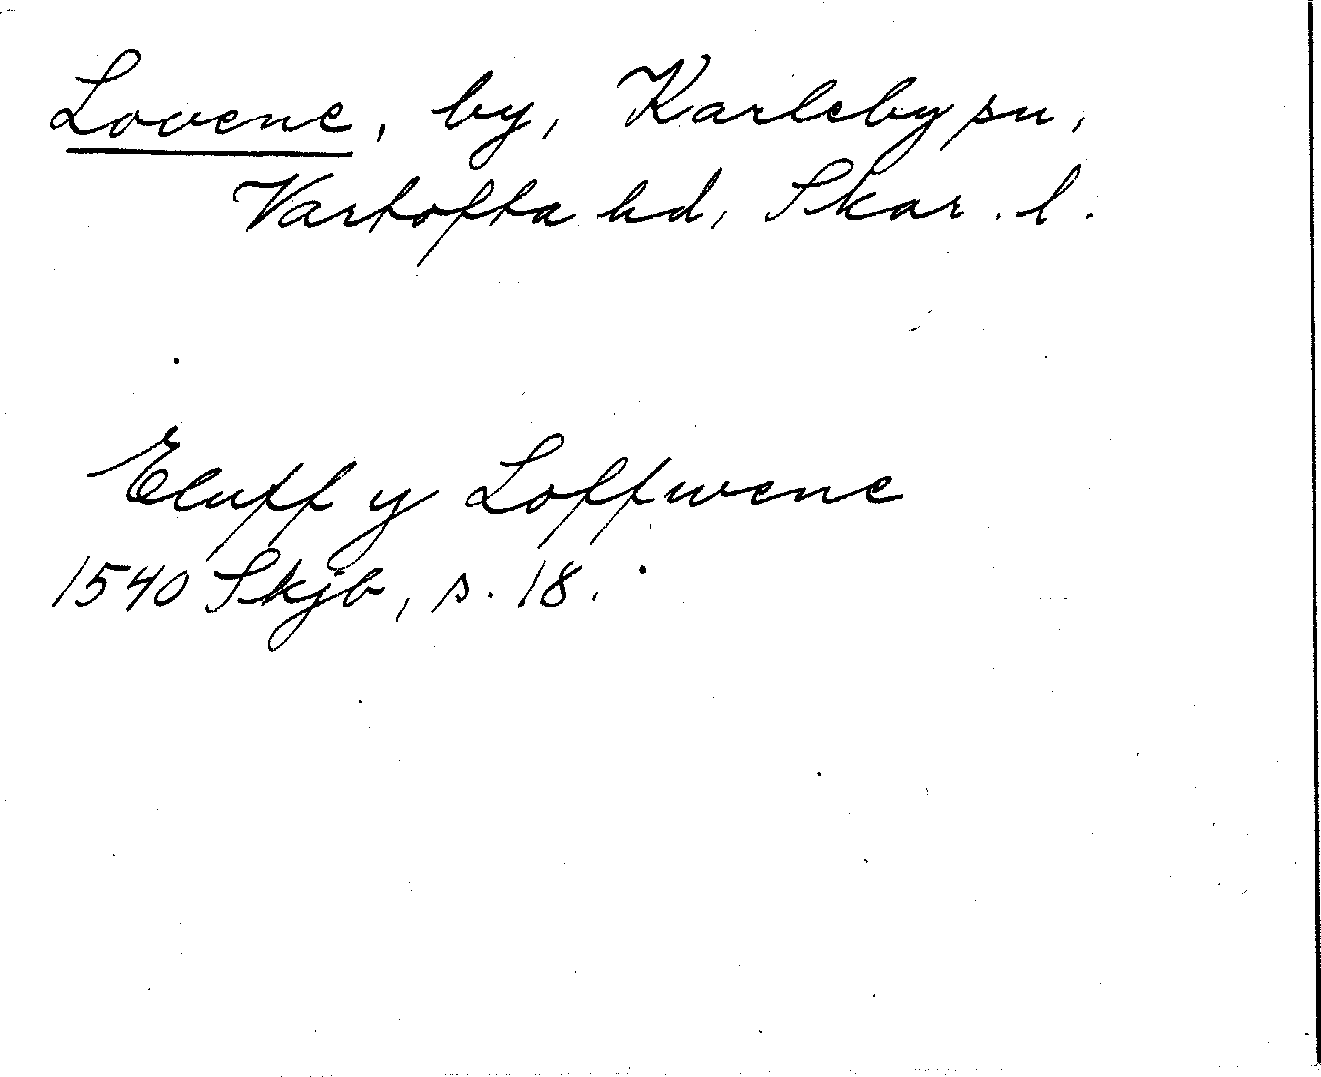 Lovene, by, Karleby sn,
Vartofta hd, Skar. l.
Eluff y Loffwene
1540 Skjb, s. 18.